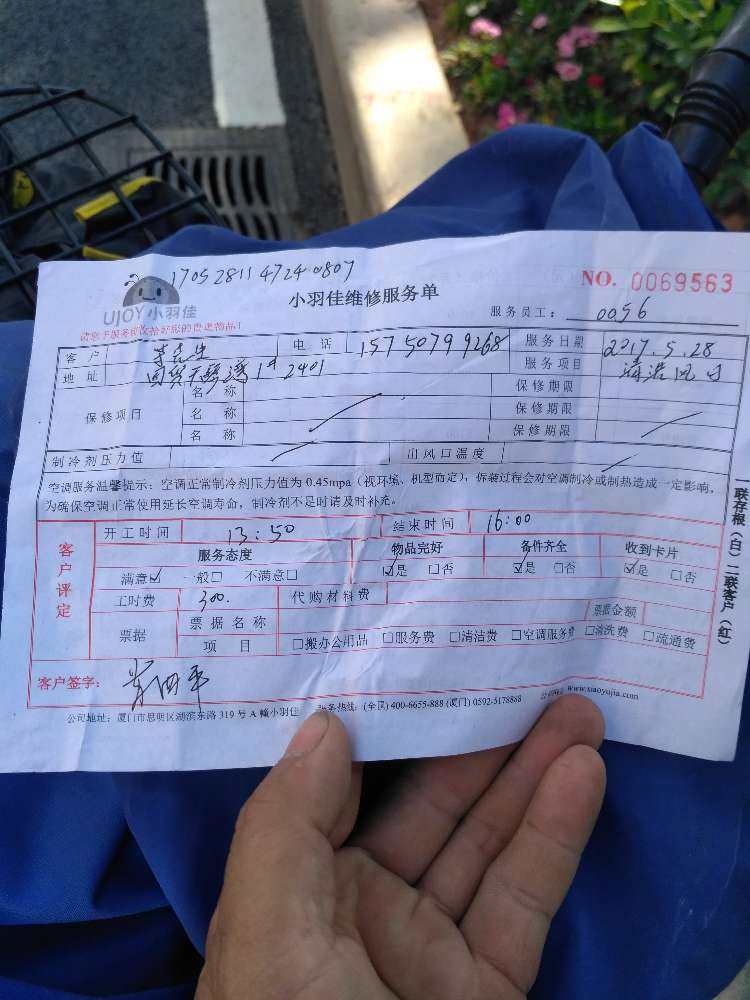 17052811 47240807
NO. 0069563
UJOY小羽佳
小羽佳维修服务单
服务员工: 0056
请您于服务前收拾好您的贵重物品!
客户 先生 电话 15750799268 服务日期 2017.5.28
地址 国贸天琴湾 1# 2401 服务项目 清洗风口
保修项目 名称 保修期限
名称 保修期限
名称 保修期限
制冷剂压力值 出风口温度
空调服务温馨提示:空调正常制冷剂压力值为 0.45mpa(视环境、机型而定),拆装过程会对空调制冷或制热造成一定影响,
为确保空调正常使用延长空调寿命,制冷剂不足时请及时补充。
客户评定
开工时间 13:50 结束时间 16:00
服务态度 物品完好 备件齐全 收到卡片
满意☑ 一般□ 不满意□ ☑是 □否 ☑是 □否 ☑是 □否
工时费 300. 代购材料费
票据 票据名称 票据金额
项目 □搬办公用品 □服务费 □清洁费 □空调服务费 □清洗费 □疏通费
客户签字:
公司地址:厦门市思明区湖滨东路 319 号 A 幢小羽佳 服务热线:(全国) 400-6655-888 (厦门) 0592-5178888 www.xiaoyujia.com
一联存根(白)二联客户(红)